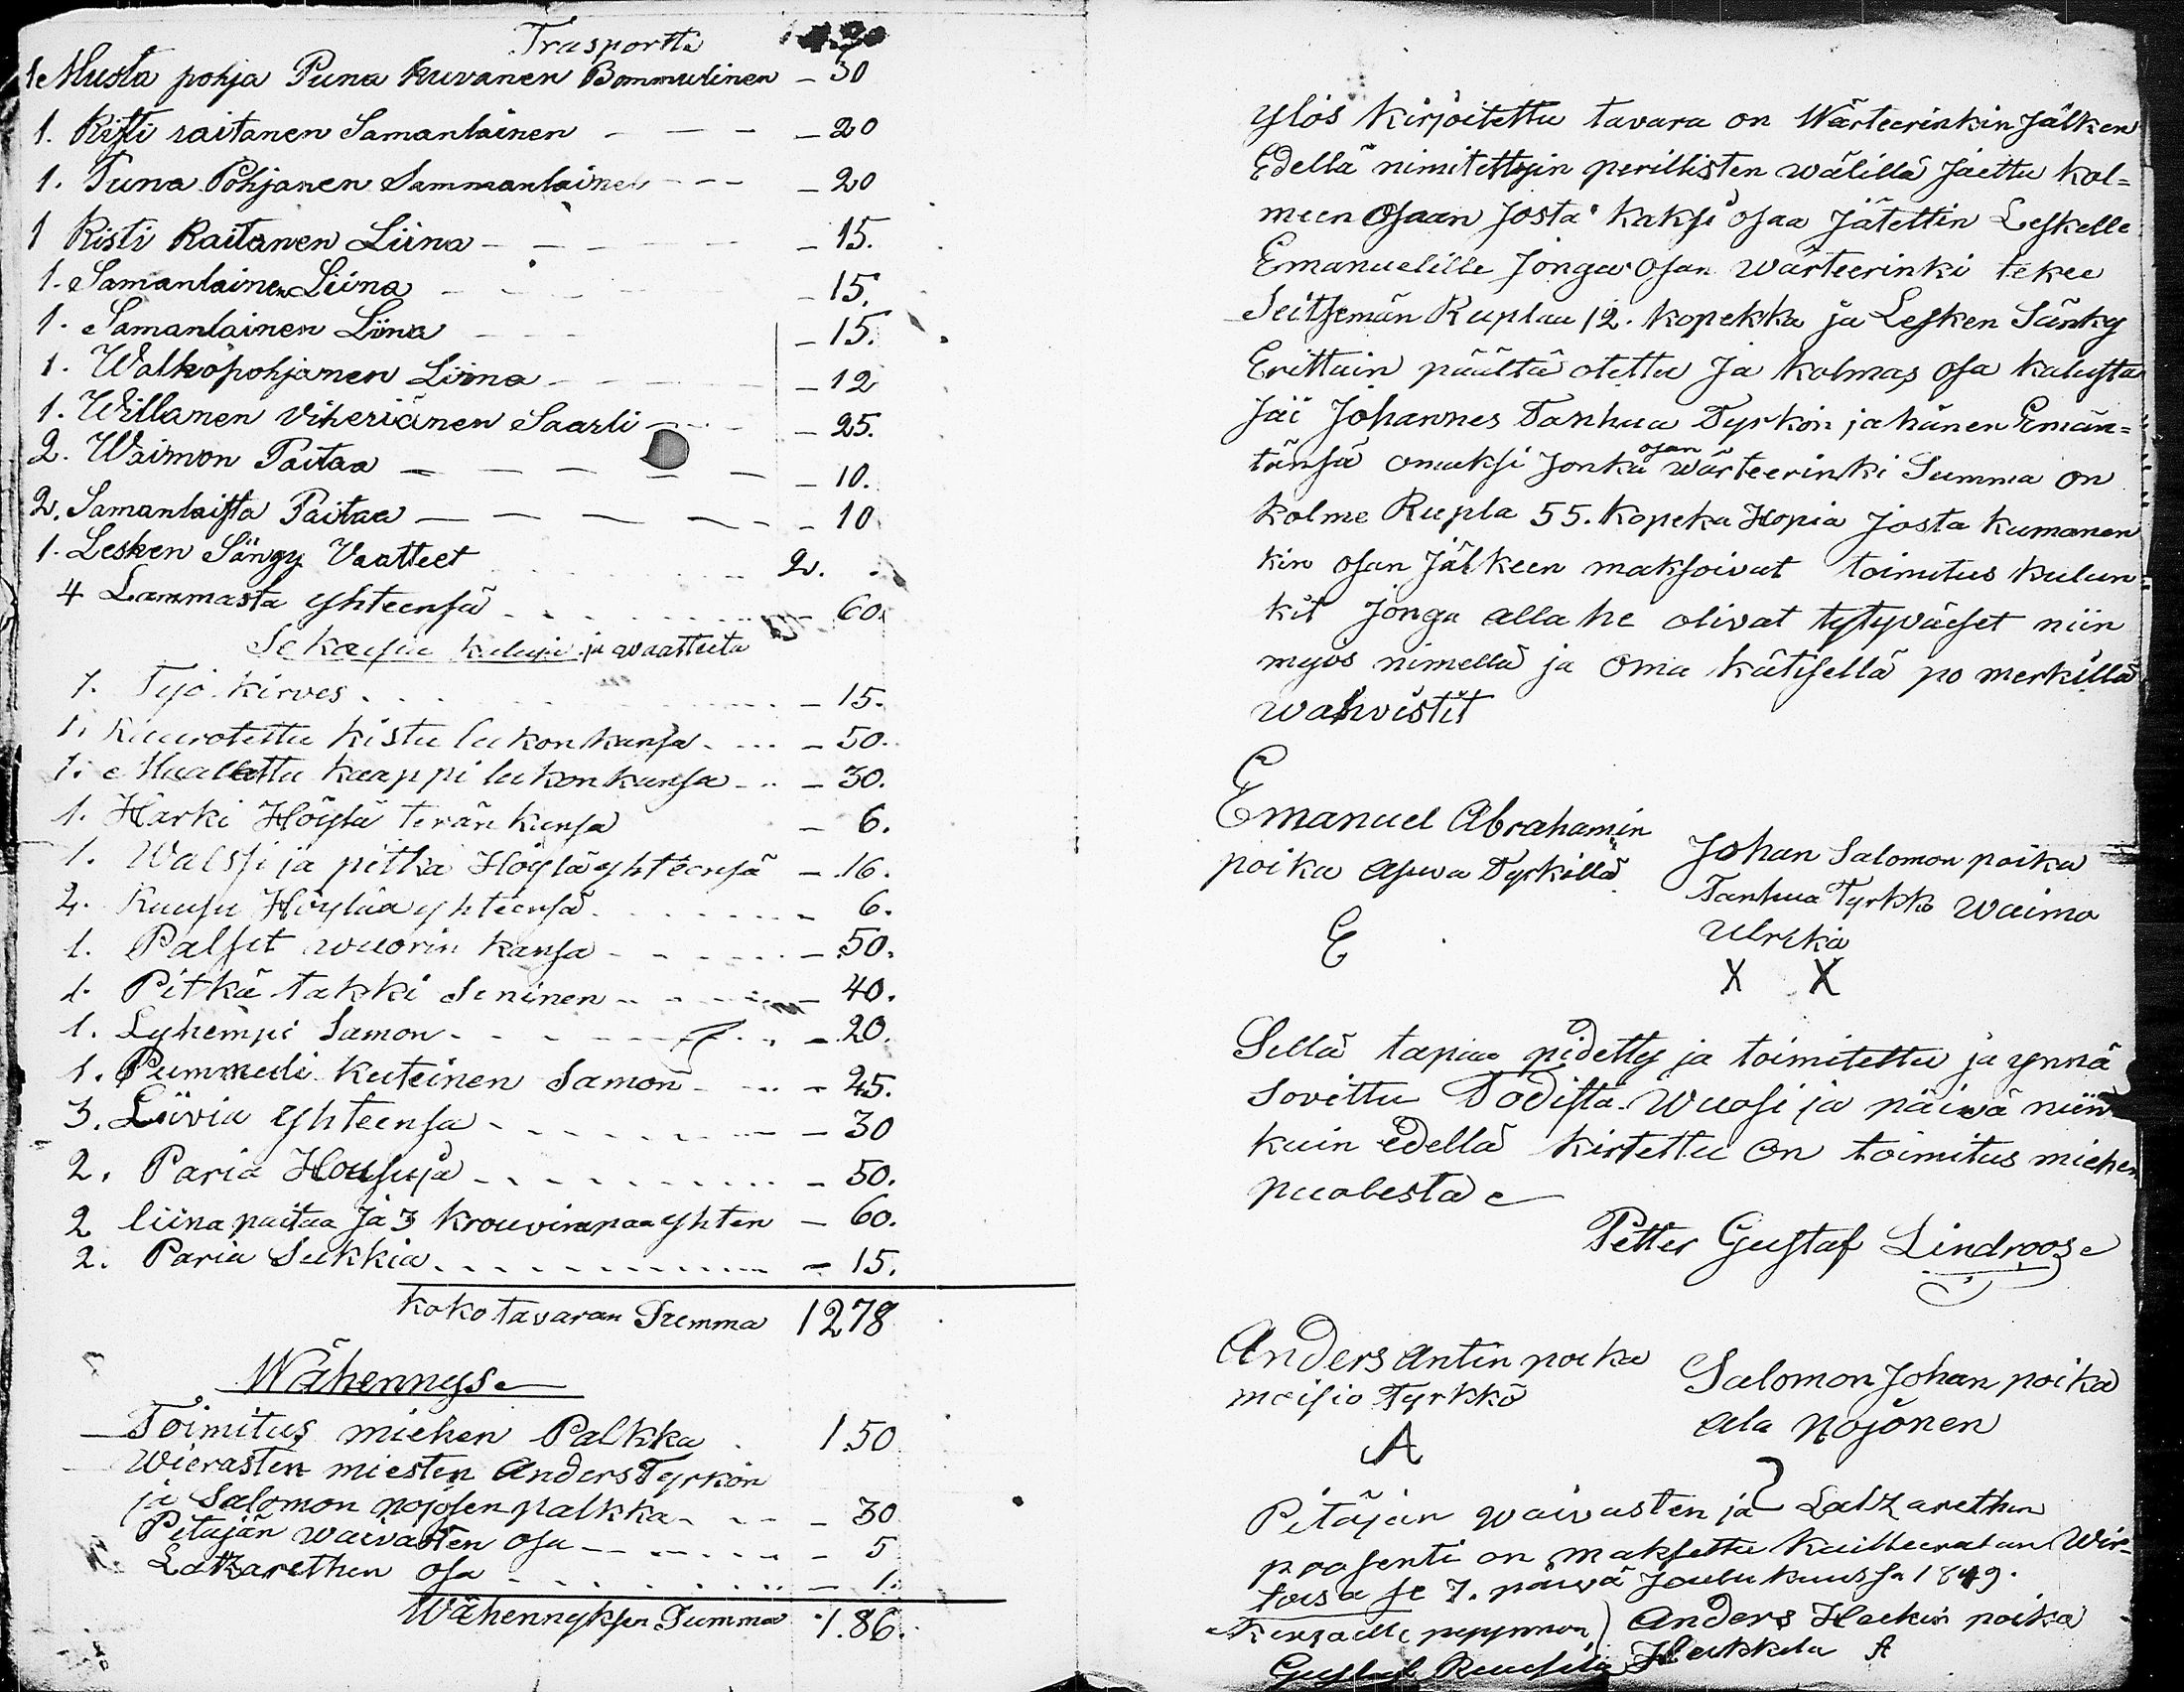 Trasportti
1. Musta pohja Puna kuvanen Bommulinen - 50
1. Risti raitanen Samanlainen - - - - 20
1. Puna Pohjanen Sammanlainen - - - - 20
1 Risti Raitanen Liina - - - - - 15.
1. Samanlainen Liina - - - - - 15.
1. Samanlainen Liina - - - - 15.
1. Walkopohjanen Liina - - - - - 12
1. Willanen viheriänen Saarli - - - - 25.
2. Waimon Paitaa - - - - - - 10.
2. Samanlaista Paitaa - - - - - - 10
1. Lesken Sängy Vaatteet 2. -
4 Lammasta yhteensä - - - - - 60.
Sekaisia kaluja ja waatteita
1. Työ kirves . . . - 15.
1. Kuurotettu kistu lukon kansa - - - 50.
1. Maalattu kaappi lukon kansa - - - 30.
1. Härki Höylä terän kansa - 6.
1. Walssi ja pitkä Höylä yhteensä - 16.
2. Ruusu Höylää yhteensä - - - - 6.
1. Palset wuorin kansa - - - - - 50.
1. Pitkä takki Seninen - - - - 40.
1. Lyhempi Samon - - - - - 20.
1. Pummuli kuteinen Samon - - - 25.
3. Liivia Yhteensa - - - - - 30
2. Paria Housuja - - - - - - 50.
2 liina paitaa ja 3 krouvimpaa yhten - 60.
2. Paria Sukkia - - - - - - 15.
koko tavaran Summa 1278
Wähennys
Toimitus miehen Palkka . 1.50
Wierasten miesten Anders Tyrkön
ja Salomon nojosen palkka - - - 30
Pitäjän waivasten osa - - - - - 5
Latzarethun osa - - - - - 1.
Wähennyksen Summa 1.86.
Ylös kirjoitettu tavara on Wärteerinkin Jälken
Edellä nimitettyin perillisten wälillä Jaettu kol=
meen osaan Josta kaksi osaa Jätettin Leskelle
Emanuelille Jonga osan wärteerinki tekee
Seitsemän Ruplaa 12. kopekka ja Lesken Sänky
Erittäin päältä otettu Ja kolmas osa kalusta
Jäi Johannes Tanhua Tyrkön ja hänen Emän=
tänsä omaksi Jonka osan wärteerinki Summa on
kolme Rupla 55. kopeka Hopia Josta kumanen
kin osan Jälkeen maksoivat toimitus kulun=
kit Jonga alla he olivat tytyväiset niin
myös nimellä ja oma kätisellä po merkillä
wahvistit
Emanuel Abrahamin
poika asuva Tyrkillä
E
Johan Salomon poika
Tanhua Tyrkkö waimo
Ulrika
X X
Sillä tapaa pidetty ja toimitettu ja ynnä
sovittu Todista. Wuosi ja päivä niin
kuin edellä kirtettu on toimitus miehen
puolesta
Petter Gustaf Lindroos
Anders Antin poika
maisio Tyrkkö
A
Salomon Johan poika
ala nojonen
Pitäjän waivasten ja Latzarethun
prosenti on maksettu Wir=
toisa se 7. päivä Joulu kuussa 1849.
Anders Heikin poika
Gustaf Heikkila A